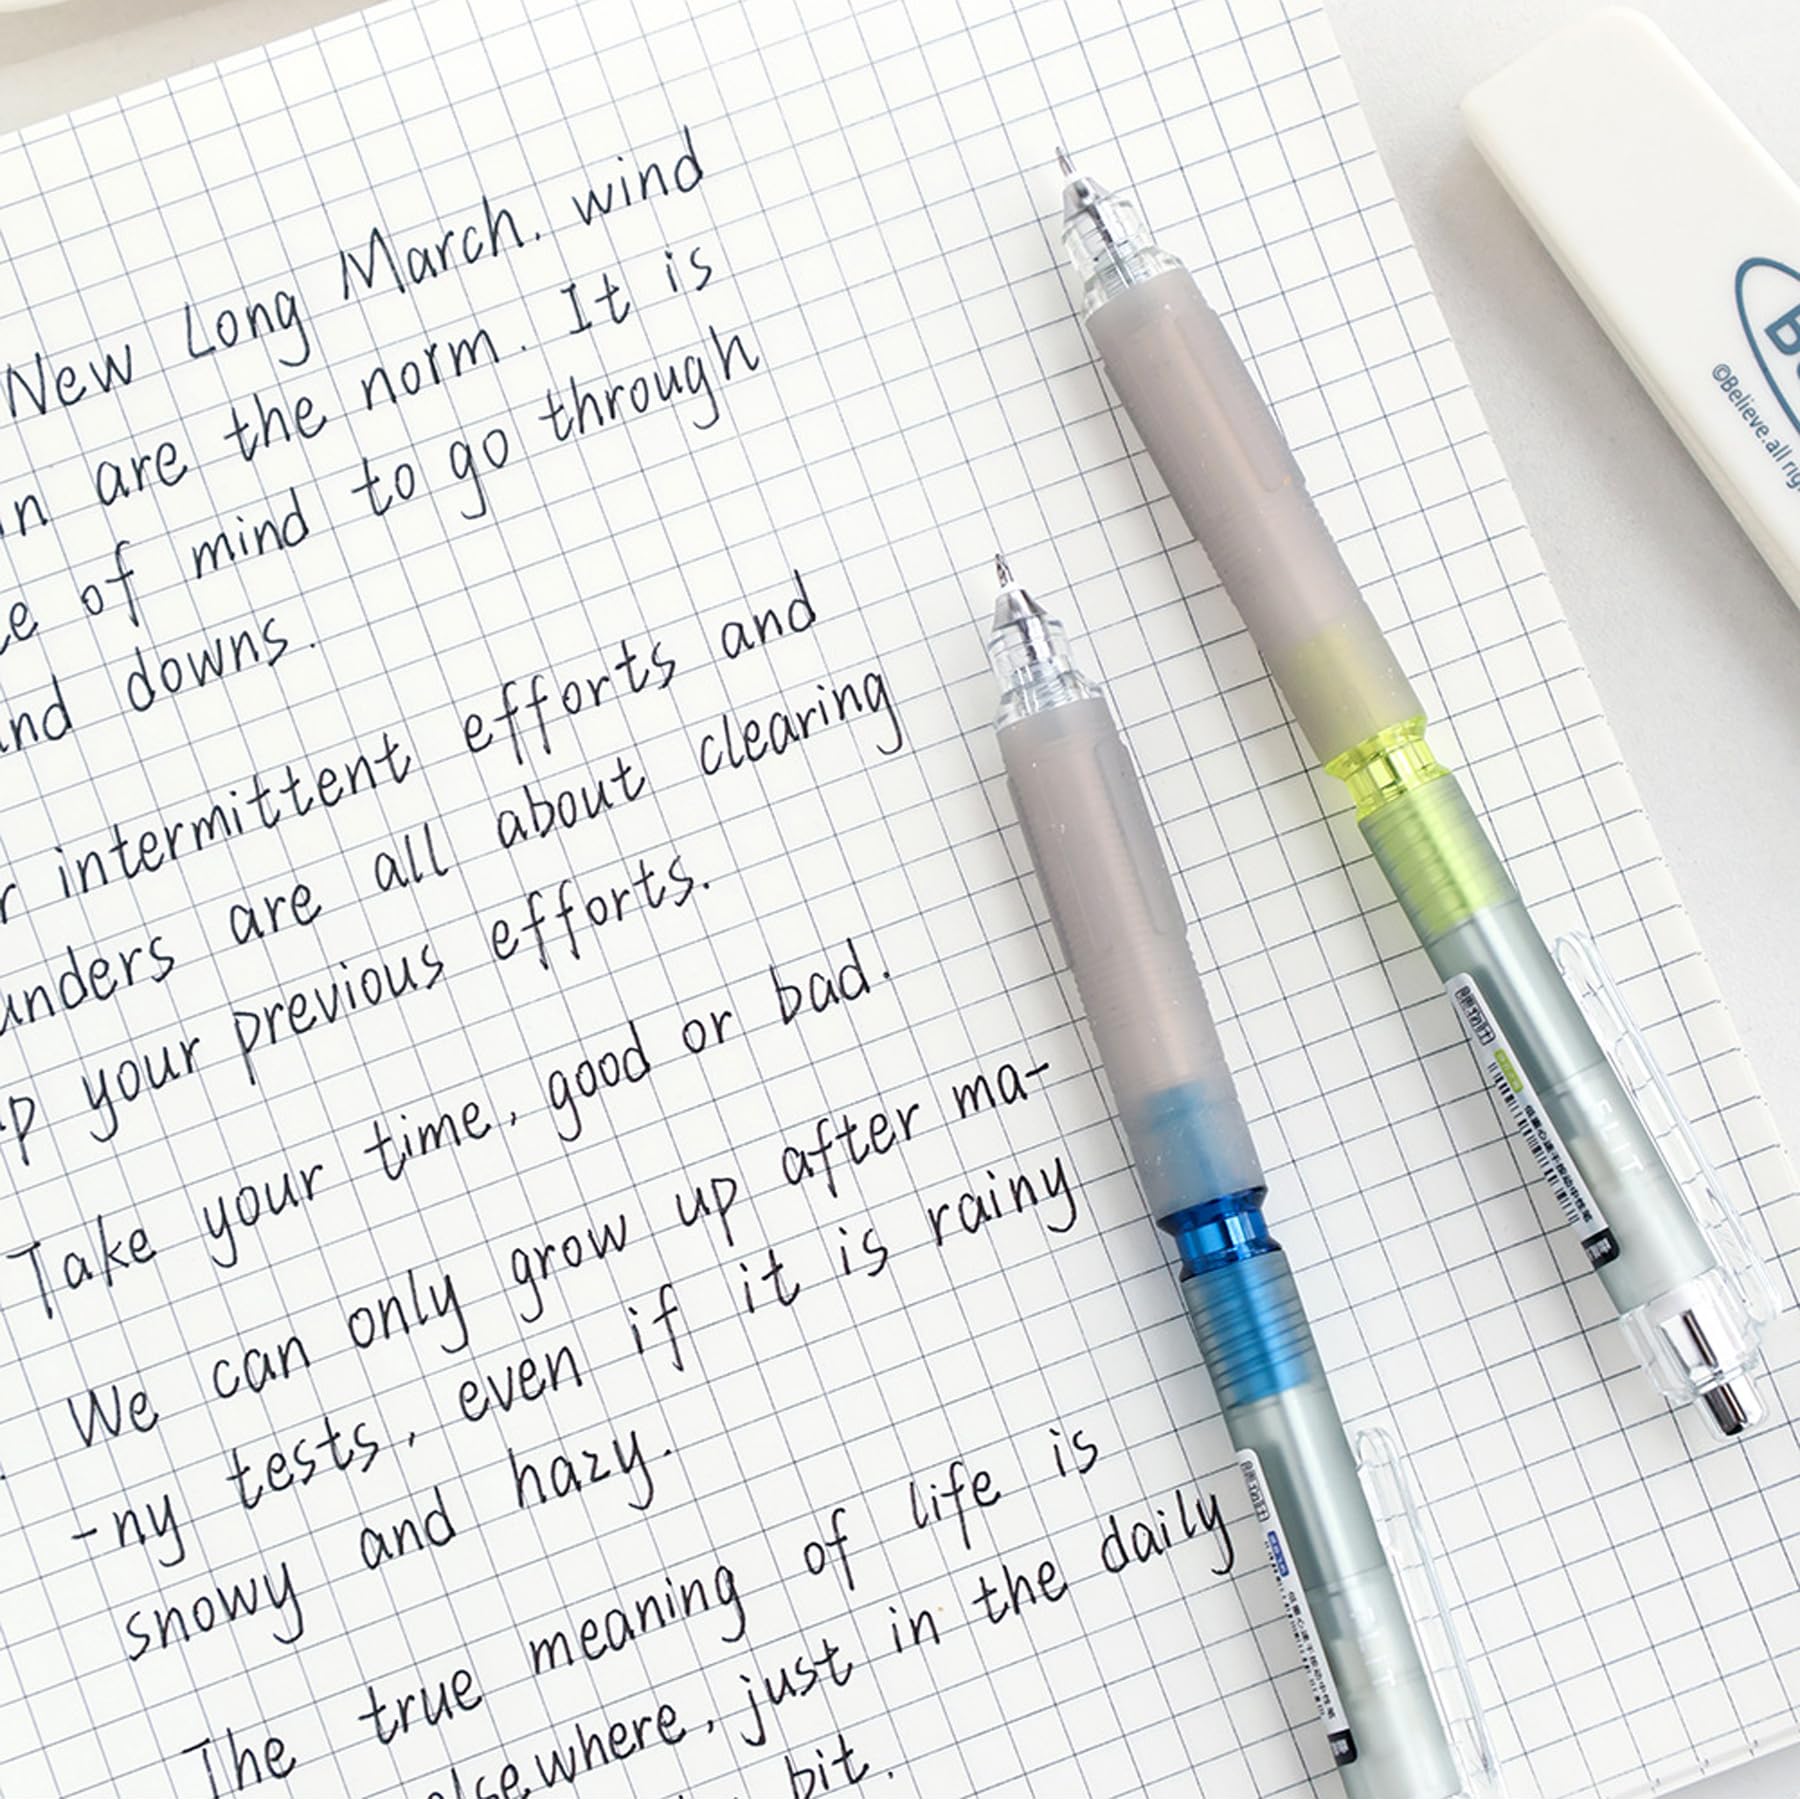 New Long March. wind
are the norm. It is
of mind to go through
and downs.
intermittent efforts and
are all about clearing
up your previous efforts.
Take your time, good or bad.
We can only grow up after ma-
-ny tests, even if it is rainy
snowy and hazy.
The true meaning of life is
elsewhere, just in the daily
bit.
©Believe.all